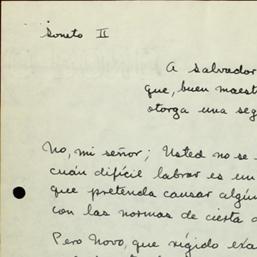 Soneto II
A Salvador
que, buen maest
otorga una seg
No, mi señor; Usted no se
cuán difícil labrar es un
que pretenda causar algún
con las normas de cierta
Pero Novo, que rígido exa